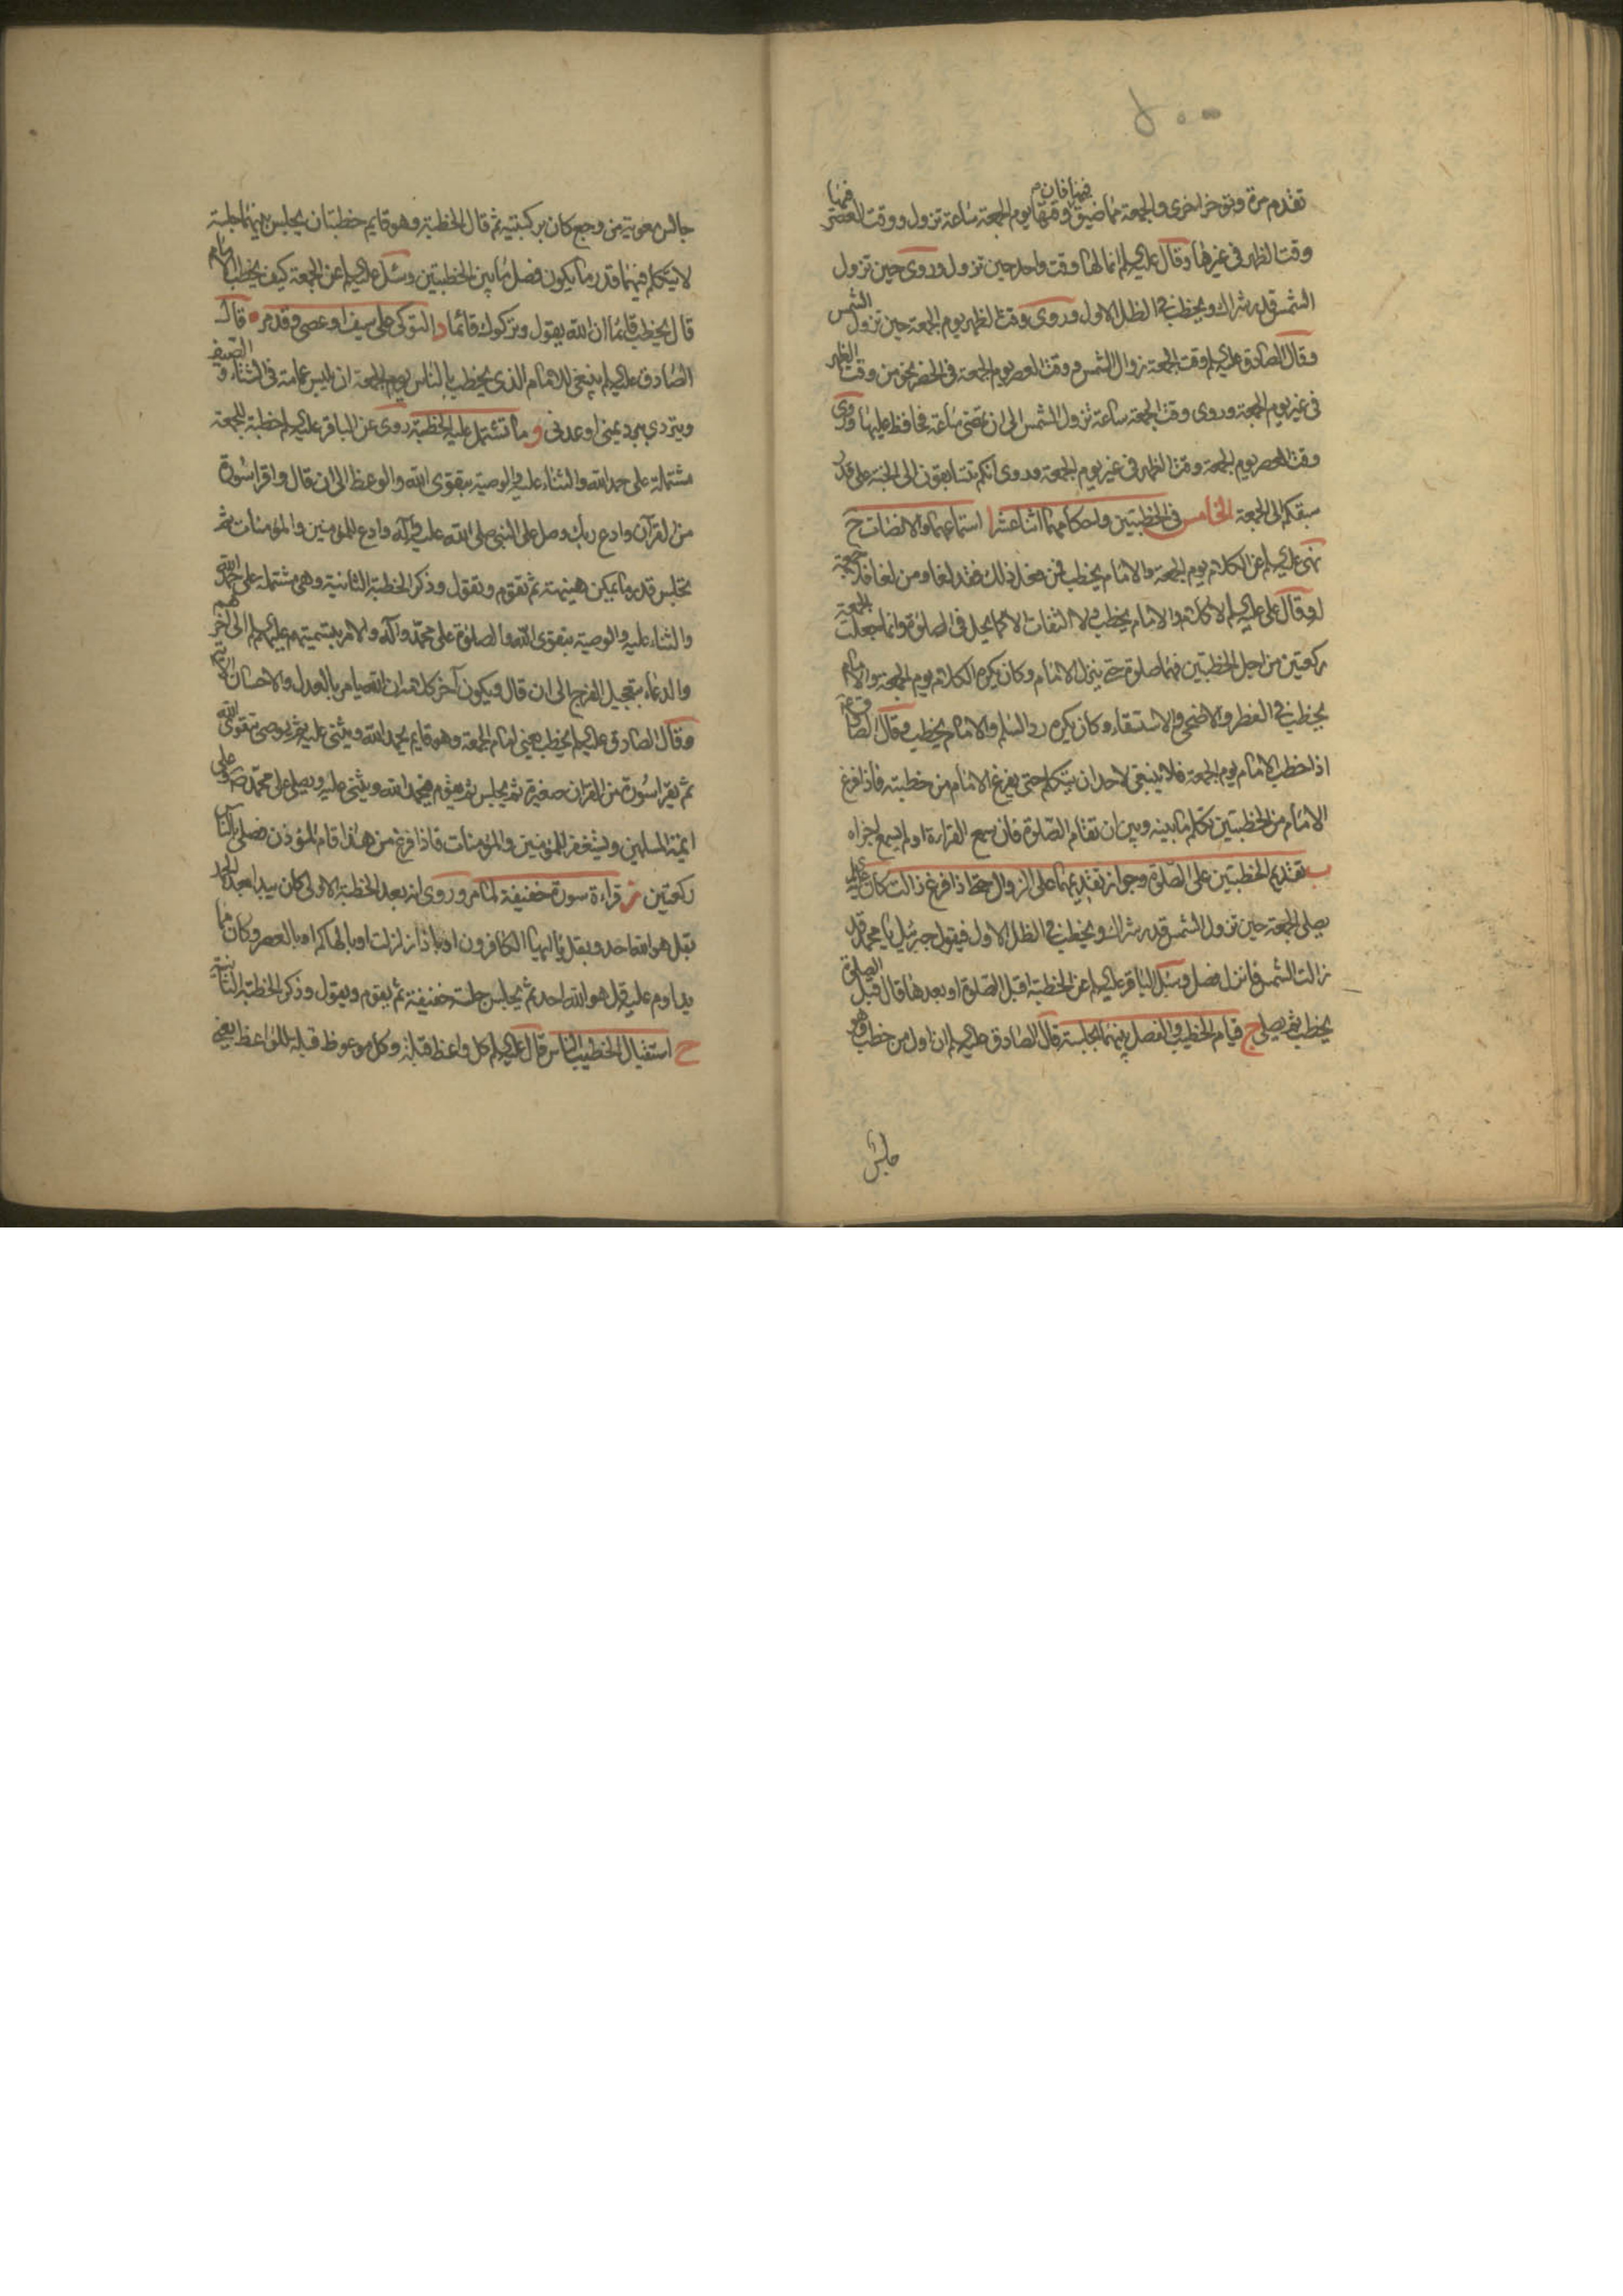 تقدم مرة وتؤخر اخرى والجمعة مما ضيق فيها فان وقتها يوم الجمعة ساعة تزول ووقت العصر فيها
وقت الظهر في غيرها وقال عليه السلام انما لها وقت واحد حين تزول وروى حين تزول
الشمس قدر شراك ويخطب في الظل الاول وروى وقت الظهر يوم الجمعة حين تزول الشمس
وقال الصادق عليه السلام وقت الجمعة زوال الشمس ووقت العصر يوم الجمعة في الحضر نحو من وقت الظهر
في غير يوم الجمعة وروى وقت الجمعة ساعة تزول الشمس الى ان تمضى ساعة فحافظ عليها وروى
وقت العصر يوم الجمعة وقت الظهر في غير يوم الجمعة وروى انكم تتسابقون الى الجنة على قدر
سبقكم الى الجمعة الخامس في الخطبتين واحكامهما اثنا عشر ا استماعهما والانصات ح
نهى عليه السلام عن الكلام يوم الجمعة والامام يخطب فمن فعل ذلك فقد لغا ومن لغا فلا جمعة
له وقال علي عليه السلام لا كلام والامام يخطب ولا التفات الا كما يحل في الصلوة وانما جعلت الجمعة
ركعتين من اجل الخطبتين فهما صلوة حتى ينزل الامام وكان يكره الكلام يوم الجمعة والامام
يخطب في الفطر والاضحى والاستسقاء وكان يكره رد السلم والامام يخطب وقال الصادق
اذا خطب الامام يوم الجمعة فلا ينبغي لاحد ان يتكلم حتى يفرغ الامام من خطبته فاذا فرغ
الامام من الخطبتين تكلم ما بينه وبين ان تقام الصلوة فان سمع القراءة او لم يسمع اجزاه
ب تقديم الخطبتين على الصلوة وجواز تقديمهما على الزوال حتى اذا فرغ زالت كان
يصلي الجمعة حين تزول الشمس قدر شراك ويخطب في الظل الاول فيقول جبرئيل يا محمد قد
زالت الشمس فانزل فصل وسئل الباقر عليه السلام عن الخطبة قبل الصلوة او بعدها قال قبل الصلوة
يخطب ثم يصلي ج قيام الخطيب والفصل بينهما بجلسة قال الصادق عليه السلام ان اول من خطب وهو
جالس
جالس معوية من وجع كان بركبتيه ثم قال الخطبة وهو قايم خطبتان يجلس بينهما جلسة
لا يتكلم فيهما قدر ما يكون فصل ما بين الخطبتين وسئل عليه السلام عن الجمعة كيف يخطب الامام
قال يخطب قائما ان الله يقول وتركوك قائما د التوكى على سيف او عصى وقد مر ه قال
الصادق عليه السلام ينبغي للامام الذي يخطب بالناس يوم الجمعة ان يلبس عمامة في الشتاء والصيف
ويتردى ببرد يمنى او عدنى و ما تشتمل عليه الخطبة روى عن الباقر عليه السلام خطبة للجمعة
مشتملة على حمد الله والثناء عليه والوصية بتقوى الله والوعظ الى ان قال واقرا سورة
من القرآن وادع ربك وصل على النبي صلى الله عليه وآله وادع للمؤمنين والمؤمنات ثم
تجلس قدر ما تمكن هنيهة ثم تقوم وتقول وذكر الخطبة الثانية وهي مشتملة على حمد الله
والثناء عليه والوصية بتقوى الله والصلوة على محمد وآله والامر بتسميتهم عليهم السلام الى آخرهم
والدعاء بتعجيل الفرج الى ان قال ويكون آخر كلامه ان الله يامر بالعدل والاحسان الآية
وقال الصادق عليه السلام يخطب يعني امام الجمعة وهو قايم يحمد الله ويثني عليه ثم يوصى بتقوى الله
ثم يقرا سورة من القران صغيرة ثم يجلس ثم يقوم فيحمد الله ويثني عليه ويصلي على محمد وعلى
ائمة المسلمين ويستغفر للمؤمنين والمؤمنات فاذا فرغ من هذا قام المؤذن فصلى بالناس
ركعتين ز قراءة سورة خفيفة لما مر وروى انه بعد الخطبة الاولى كان يبدا بعد الحمد
بقل هو الله احد وبقل يا ايها الكافرون او باذا زلزلت او بالهاكم او بالعصر وكان مما
يداوم عليه قل هو الله احد ثم يجلس جلسة خفيفة ثم يقوم ويقول وذكر الخطبة الثانية
ح استقبال الخطيب الناس قال عليه السلام كل واعظ قبلة وكل موعوظ قبلة للواعظ يعني